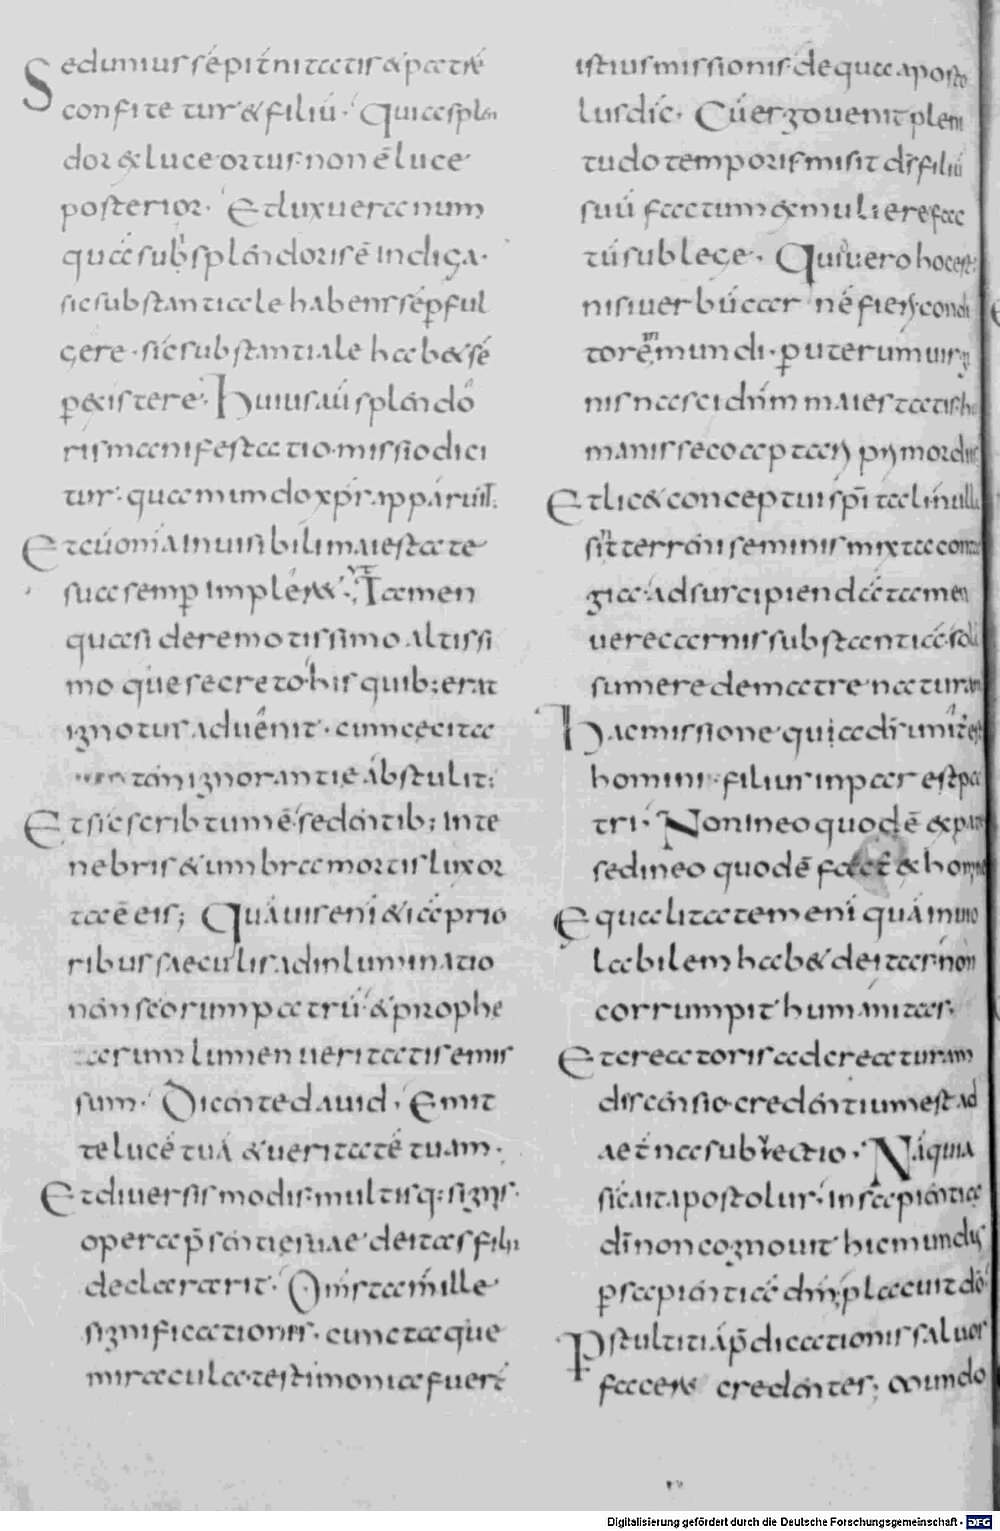 Sed unius sẽpit̃nitatis & patrẽ
confitetur & filiũ. Qui a splen
dor ex luce ortus non ẽ luce
posterior. Et lux uera num
quã sub splendoris ẽ indiga.
sic substantiale habens sẽp ful
gere. sic substantiale hab& sẽ
p existere. Huius aũ splendo
ris manifestatio missio dici
tur. qua mundo xp̃s apparuit.
Et cũ om̃ia inuisibili maiestate
sua semp impler& Tamen
quasi de remotissimo altissi
moque secreto his quib; erat
ignotus aduenit. cum cęcita
tem ignorantię abstulit;
Et sic scribtum ẽ. sedentib; in te
nebris & umbra mortis lux or
ta ẽ eis; Quãuis eni & iã prio
ribus saeculis ad inlumina tio
nem scorum patrũ & prophe
tarum lumen ueritatis emis
sum. Dicente dauid. Emit
te lucẽ tuã & ueritatẽ tuam.
Et diuersis modis multisq; signis.
opera p̃sentię suae deitas filii
declararit. Om̃s tam̃ ille
significationes. cunctaque
miracula testimonia fuer̃
istius missionis de qua aposto
lus dic̃. Cũ ergo uenit pleni
tudo temporis misit d̃s filiũ
suũ factum ex muliere fac
tũ sub lege. Quid uero hoc est.
nisi uerbũ car ne fieri. condi
torẽ mundi. p uterum uirgi
nis nasci dñm maiestatis hu
manis se coaptari primordiis
Et lic& conceptui sp̃itali nulla
sit terreni seminis mixta conta
gia ad suscipiendã tamen
uerae carnis substantiã sola
sumere de matre naturam
Hac missione qui a d̃s unit̃ est
homini. filius inpar est pa
tri. Non in eo quod ẽ ex patre
sed in eo quod ẽ fact̃ ex homine
Equalitatem eni quã inuio
labilem hab& deitas. non
corrumpit humanitas.
Et creatoris ad creaturam
discensio credentium est ad
aet̃na subuectio. Nã quia
sic̃ ait apostolus. in sapientia
d̃i non cognouit hic mundus
p sapientiã dm̃ placuit dõ
P stultitiã p̃dicationis saluos
facere credentes; Mundo